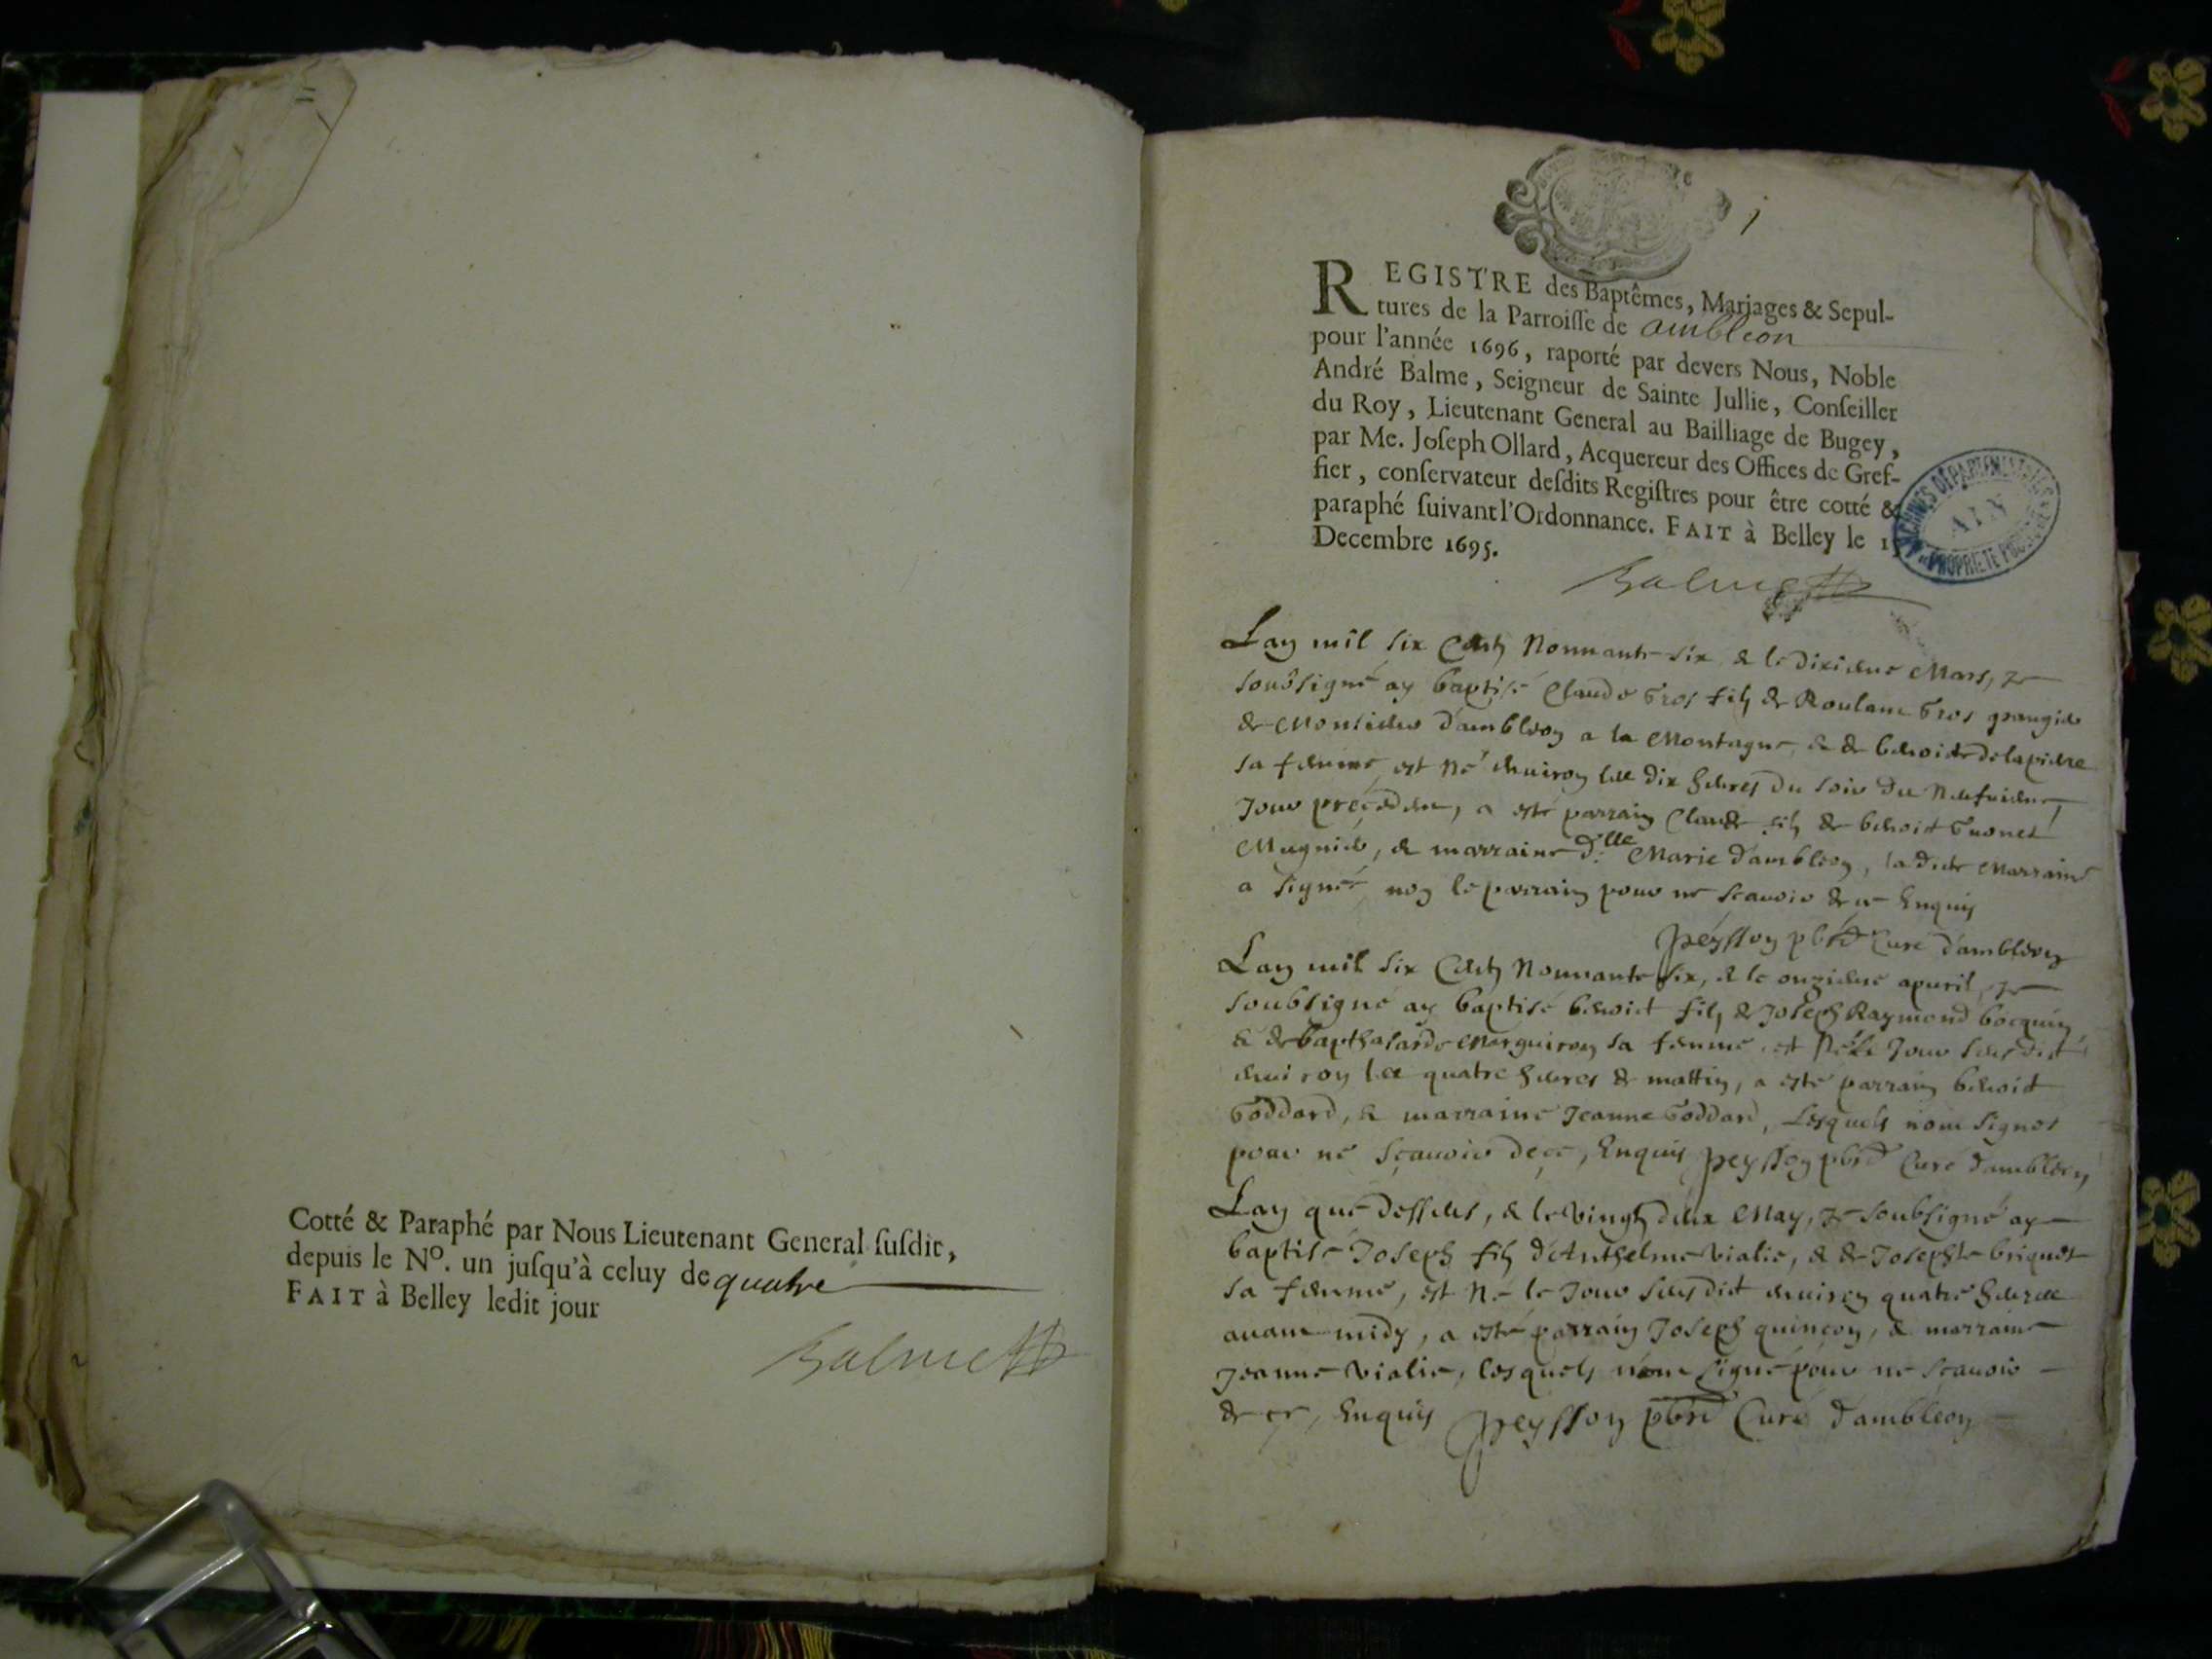 Cotté & Paraphé par Nous Lieutenant General ſuſdit,
depuis le Nº. un juſqu'à celuy de quatre
FAIT à Belley ledit jour
Balme
j
REGISTRE des Baptêmes, Mariages & Sepul-
tures de la Parroiſſe de ambleon
pour l'année 1696, raporté par devers Nous, Noble
André Balme, Seigneur de Sainte Jullie, Conſeiller
du Roy, Lieutenant General au Bailliage de Bugey,
par Me. Joſeph Ollard, Acquereur des Offices de Gref-
fier, conſervateur deſdits Regiſtres pour être cotté &
paraphé ſuivant l'Ordonnance. FAIT à Belley le
Decembre 1695.
ARCHIVES DÉPARTEMENTALES
AIN
PROPRIETE PUBLIQUE
Balme
Lan mil six Cents Nonnante six & le dixieme Mars, Je
soubsigné ay baptisé Claude Gros fils de Roulant Gros grangier
de Monsieur d'ambleon a la Montagne, & de benoite delapierre
sa femme, est Né environ les dix heures du soir du Neufvieme
Jour precedent, a esté parrain Claude fils de benoit
Mugnier, & marraine d.lle Marie d'ambleon, ladite Marraine
a signée non le parrain pour ne scavoir de ce Enquis
peysson pbre Curé d'ambleon
Lan mil six Cents Nonnante six, & le onzieme apvril, Je
soubsigné ay baptisé benoit fils de Joseph Raymond bocquin,
& de bapthasarde Merguiron sa femme, est Né le Jour susdit
environ les quatre heures de mattin, a esté parrain benoit
Goddard, & marraine Jeanne Goddard, Lesquels n'ont signes
pour ne sçavoir de ce, Enquis peysson pbre Curé d'ambleon
Lan que dessus, & le vingt deux May, Je soubsigné ay
baptisé Joseph fils d'Anthelme vialie, & de Josephte briquet
sa femme, est Né le Jour susdit environ quatre heures
avant midy, a esté parrain Joseph quinçon, & marraine
Jeanne vialie, lesquels n'ont signé pour ne scavoir
de ce, Enquis peysson pbre Curé d'ambleon